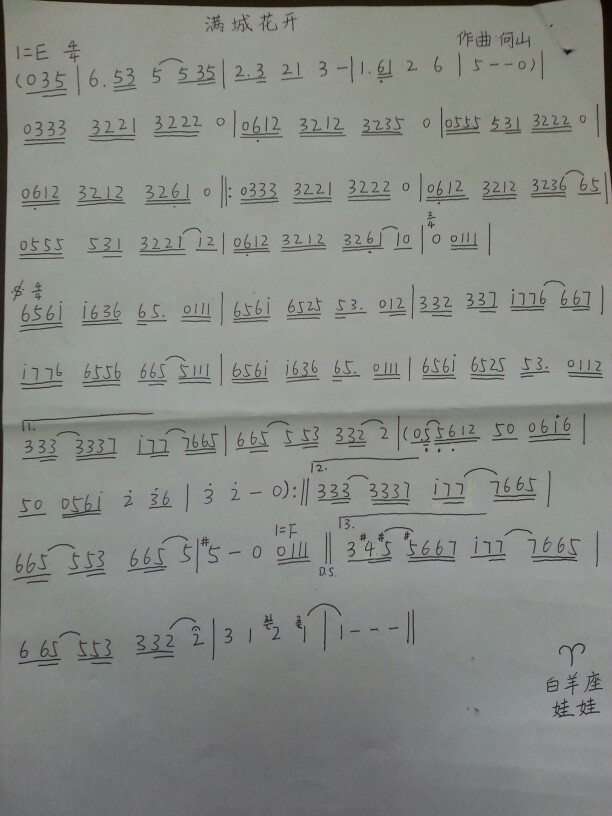 满城花开
1=E 4/4 作曲:何山
(035 | 6.53 5 535 | 2.3 21 3 - | 1.61 2 6 | 5 - - 0) |
0333 3221 3222 0 | 0612 3212 3235 0 | 0555 531 3222 0 |
0612 3212 3261 0 ‖: 0333 3221 3222 0 | 0612 3212 3236 65 |
0555 531 3221 12 | 0612 3212 3261 10 | 3/4 0 0111 |
𝄋 4/4
656i i636 65. 0111 | 656i 6525 53. 012 | 332 337 i776 667 |
i776 6556 665 5111 | 656i i636 65. 0111 | 656i 6525 53. 0112
1.
333 3337 i77 7665 | 665 553 332 2 | (055612 50 06i6 |
50 056i 2̇ 3̇6 | 3̇ 2̇ - 0) :‖ 2. 333 3337 i77 7665 |
665 553 665 5 | #5 - 0 1=F 0111 ‖ D.S. 3. 3#4#5 #5667 i77 7665 |
665 553 332 2 | 3 1 2 1 | 1 - - - ‖
♈
白羊座
娃娃